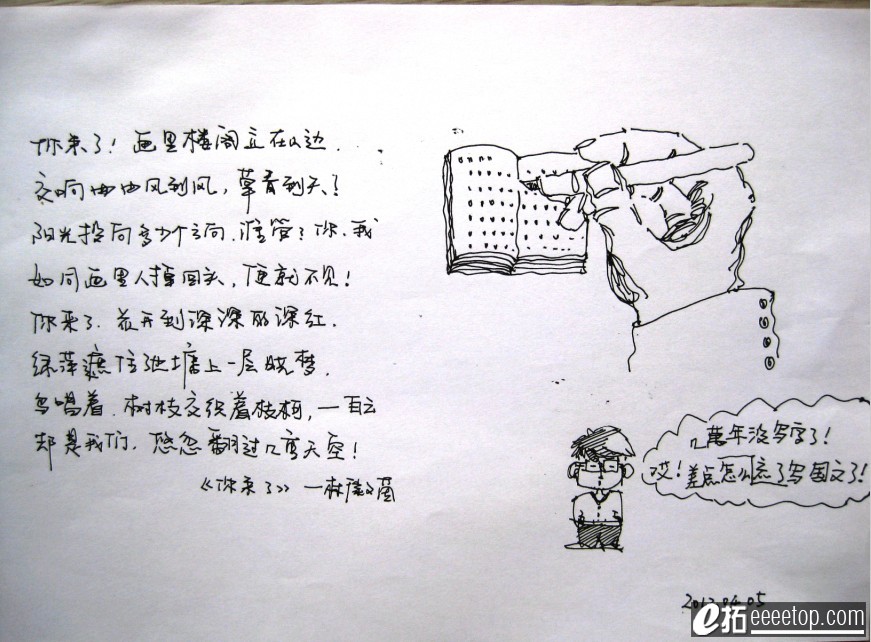 你来了！画里楼阁立在山边．
交响曲由风到风，草青到天！
阳光投向多少个方向，谁管？你，我
如同画里人掉回头，便就不见！
你来了．花开到深深的深红．
绿萍遮住池塘上一层晓梦．
鸟唱着．树枝交织着枝柯，一白云
却是我们．悠忽翻过几重天空！
《你来了》—林徽因
几万年没写字了！
哎！差点怎么忘了写国文了！
04.05
e拓 eeeetop.com